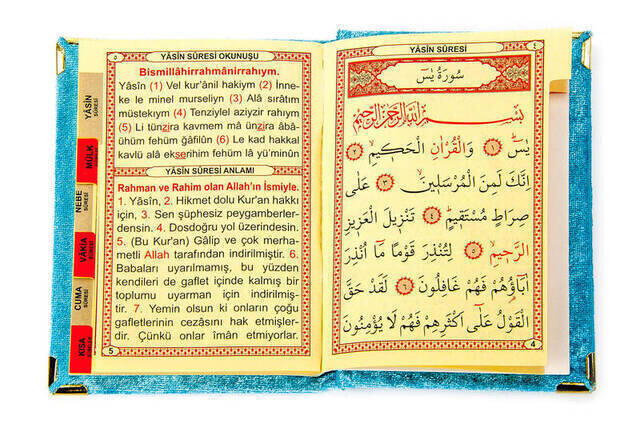 YÂSİN SÛRESİ OKUNUŞU
Bismillâhirrahmânirrahıym.
Yâsîn (1) Vel kur'ânil hakiym (2) İnne-
ke le minel murseliyn (3) Alâ sırâtım
müstekıym (4) Tenziylel aziyzir rahıym
(5) Li tünzira kavmem mâ ünzira âbâ-
ühüm fehüm ğâfilûn (6) Le kad hakkal
kavlü alâ ekserihim fehüm lâ yü'minûn
YÂSİN SÛRESİ ANLAMI
Rahman ve Rahim olan Allah'ın İsmiyle.
1. Yâsîn, 2. Hikmet dolu Kur'an hakkı
için, 3. Sen şüphesiz peygamberler-
densin. 4. Dosdoğru yol üzerindesin.
5. (Bu Kur'an) Gâlip ve çok merha-
metli Allah tarafından indirilmiştir. 6.
Babaları uyarılmamış, bu yüzden
kendileri de gaflet içinde kalmış bir
toplumu uyarman için indirilmiş-
tir. 7. Yemin olsun ki onların çoğu
gafletlerinin cezasını hak etmişler-
dir. Çünkü onlar îmân etmiyorlar.
5
YÂSİN SÛRESİ
MÜLK SÛRESİ
NEBE SÛRESİ
VÂKIA SÛRESİ
CUMA SÛRESİ
KISA
YÂSİN SÛRESİ
٤
سُورَةُ يٰسٓ
بِسْمِ اللّٰهِ الرَّحْمٰنِ الرَّحِيمِ
يٰسٓ ١ وَالْقُرْاٰنِ الْحَكِيمِ ٢
اِنَّكَ لَمِنَ الْمُرْسَلِينَ ٣ عَلٰى
صِرَاطٍ مُسْتَقِيمٍ ٤ تَنْزِيلَ الْعَزِيزِ
الرَّحِيمِ ٥ لِتُنْذِرَ قَوْمًا مَٓا اُنْذِرَ
اٰبَٓاؤُهُمْ فَهُمْ غَافِلُونَ ٦ لَقَدْ حَقَّ
الْقَوْلُ عَلٰٓى اَكْثَرِهِمْ فَهُمْ لَا يُؤْمِنُونَ
4